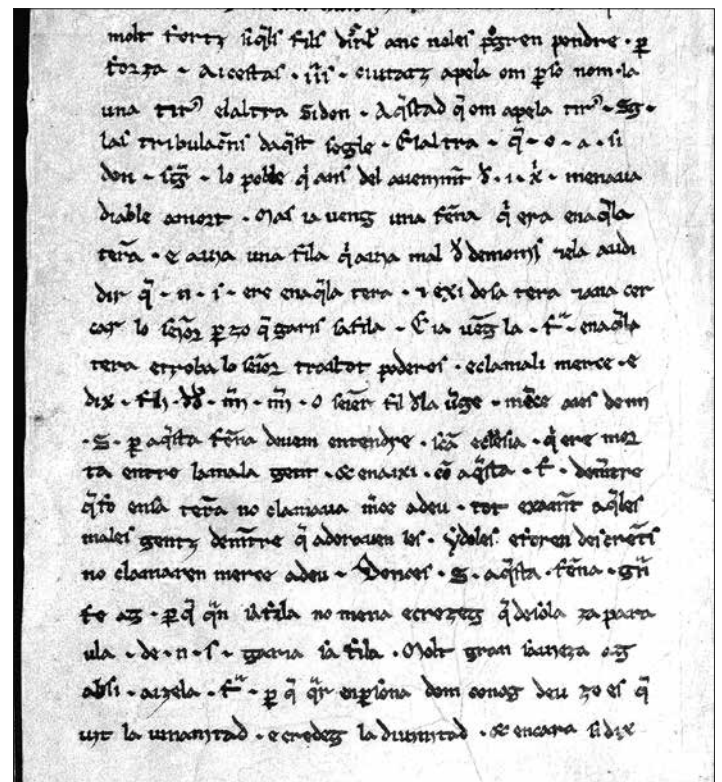 molt fortz si q̄ls fils disrl̄ anc noles pogren pendre · p̄
forza · Aicestas · ii̅s · ciutatz apela om p̄ so nom · la
una tir⁹ elaltra Sidon · Aq̄stad q̄ om apela tir⁹ · Sg ·
las tribulaciōns daq̄st segle · Elaltra · q̄ · o · a · si
don · sig̅ · lo poble q̄ ans del aveniment d̄ · i · x̄ · menava
diable amort · Mas ia veng una fēna q̄ era enaq̄la
terra · e avia una fila q̄ avia mal d̄ demonis ela audi
dir q̄ · n · s · ere enaq̄la tera · ⁊ exi dela tera ana cer
car lo seior p̄ zo q̄ garis sa fila · E ia vēg la · f̄ · enaq̄la
tera etroba lo seior tot poderos · eclamali merce · e
dix · fili · dd̄ · m̄ · m̄ · o seiēr fil dla v̄ge · mēce aies de mi
· S · p̄ aq̄sta fēna devem entendre · scā eclesia · q̄ ere mor
ta entre lamala gent · & enaixi · cō aq̄sta · f̄ · dem̄tre
q̄ fo ensa terra no clamava m̄ce adeu · tot exam̄t aq̄les
males gentz dem̄tre q̄ adoraven les · ydoles efcren
no clamaren merce adeu · Donces · S · aq̄sta · fēna · gn̄
fe ag · p̄ q̄ q̄n sa fila no mena ecrezeg q̄ de sola za para
ula · de · n · s · garia sa fila · Molt gran saviza ag
absi · aizela · f̄ · p̄ q̄ q̄r en p̄sona dom conog deu zo es q̄
vit la umanitad · e credeg la divinitad · & encara si dix